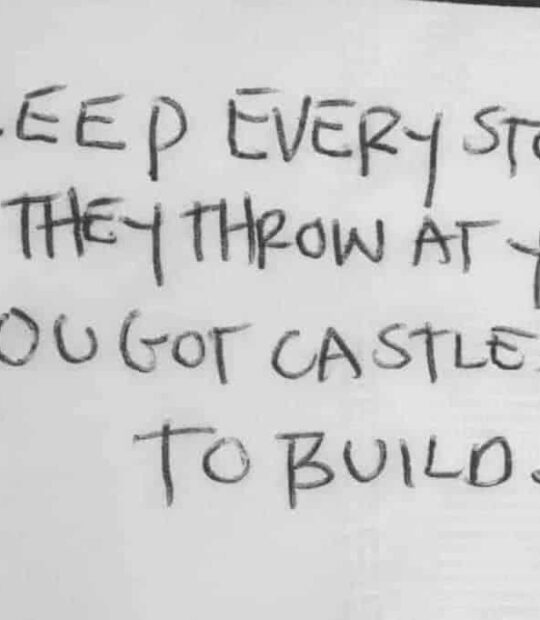 EEP EVERY STO
THEY THROW AT Y
OU GOT CASTLES
TO BUILD.